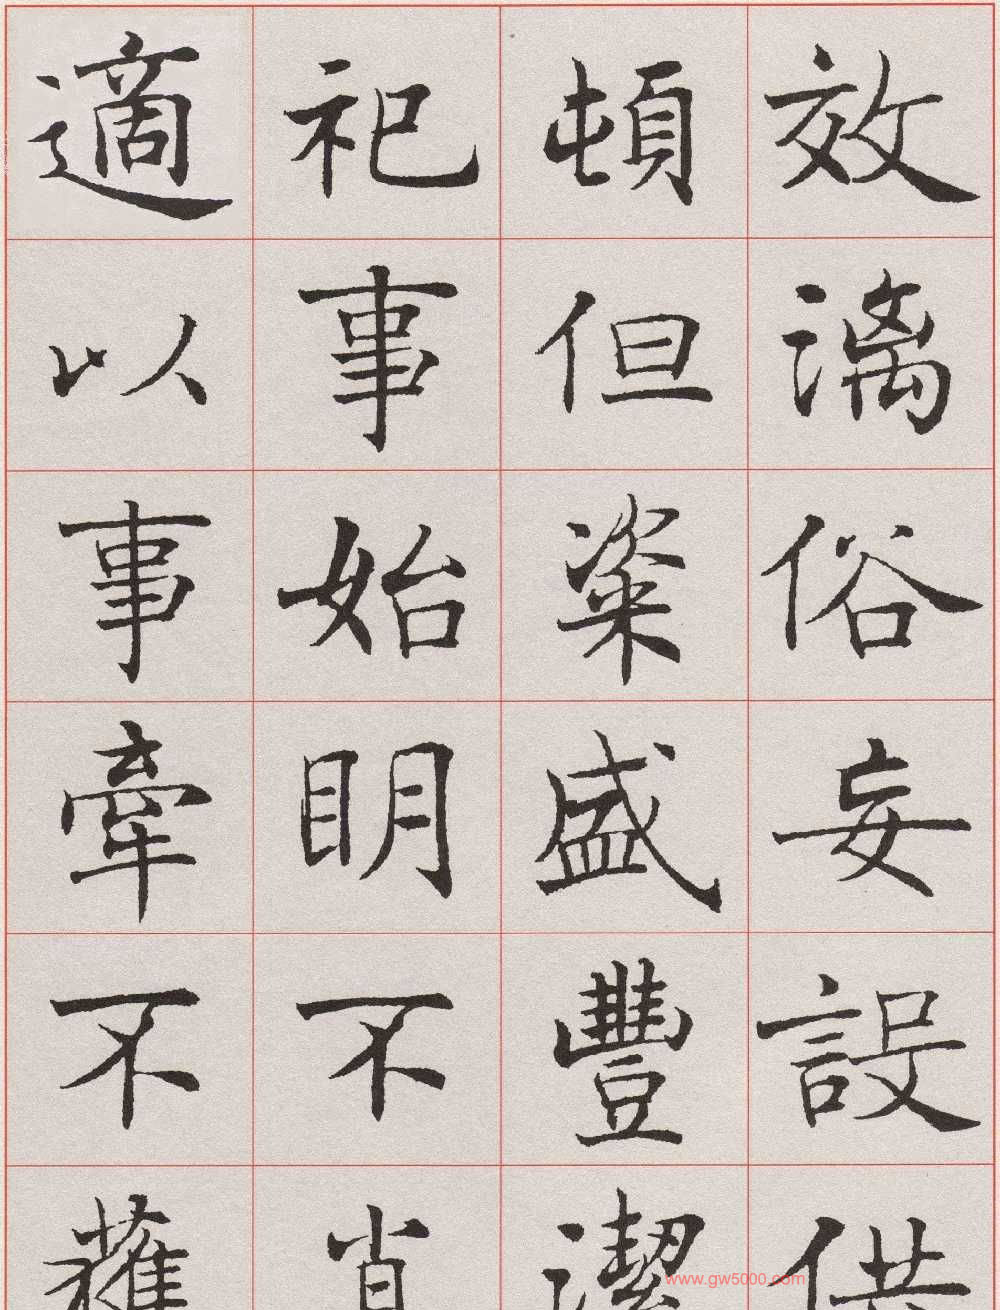 效漓俗妄設供
頓但粢盛豐潔
祀事始眀不肖
適以事牽不獲
www.gw5000.com